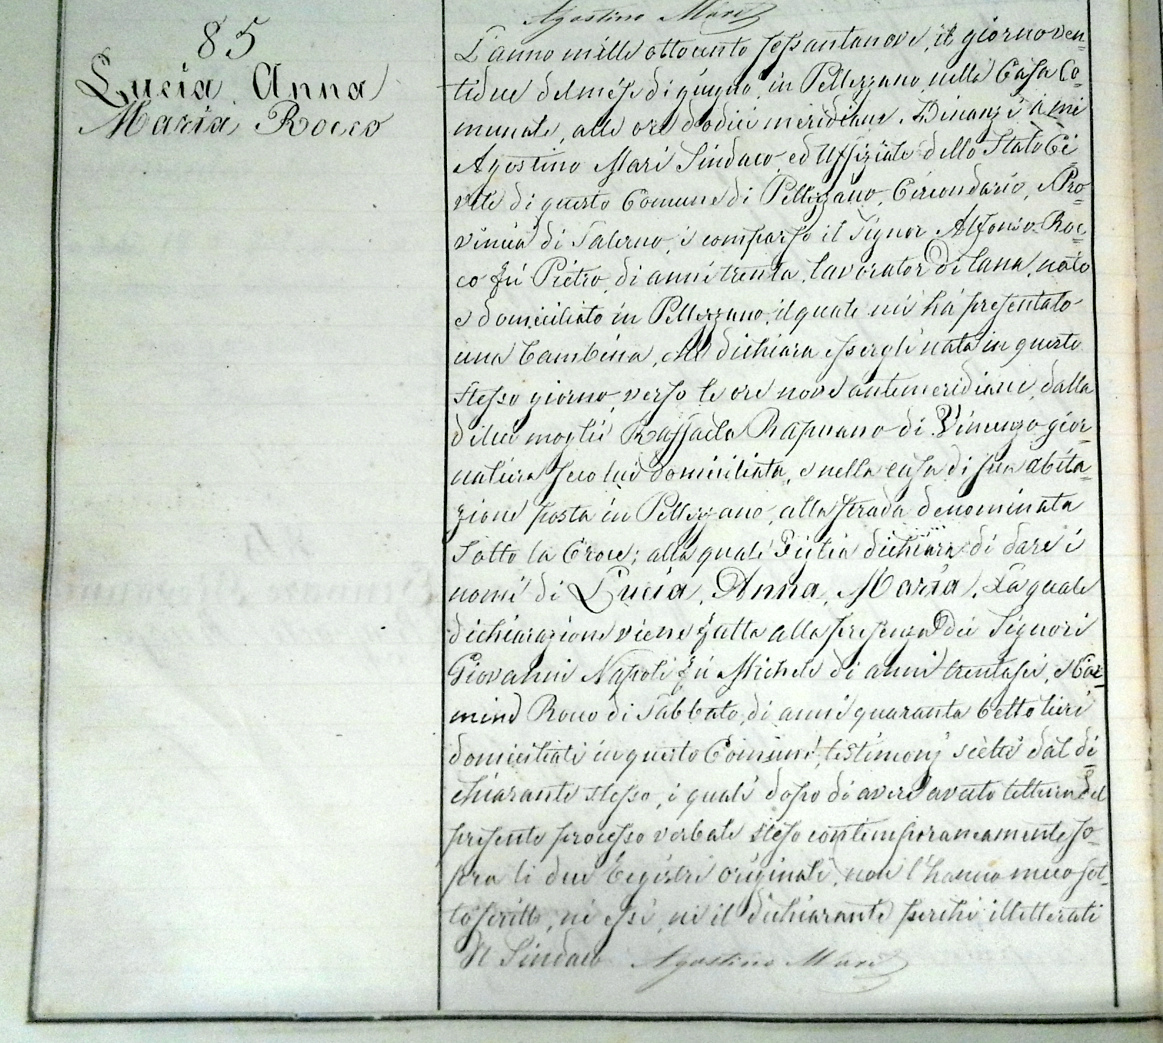 Agostino Mari
85
Lucia Anna
Maria Rocco
L'anno mille ottocento sessantanove, il giorno ven=
tidue del mese di giugno in Pellezzano nella Casa Co=
munale, alle ore dodici meridiane. Dinanzi a me
Agostino Mari Sindaco ed Uffiziale dello Stato Ci=
vile di questo Comune di Pellezzano, Circondario, e Pro=
vincia di Salerno, è comparso il Signor Alfonso Roc=
co fu Pietro, di anni trenta, lavorator di lana, nato
e domiciliato in Pellezzano, il quale mi ha presentato
una bambina, che dichiara essergli nata in questo
stesso giorno verso le ore nove antemeridiane, dalla
di lui moglie Raffaela Rapuano di Vincenzo gior=
naliera seco lui domiciliata, e nella casa di sua abita=
zione posta in Pellezzano, alla strada denominata
Sotto la Croce; alla quale Figlia dichiara di dare i
nomi di Lucia, Anna, Maria. La quale
dichiarazione viene fatta alla presenza dei Signori
Giovanni Napoli fu Michele di anni trentasei, e Car=
mine Rocco di Sabbato, di anni quaranta bettolieri
domiciliati in questo Comune, testimonj scelti dal di=
chiarante stesso, i quali dopo di avere avuto lettura del
presente processo verbale steso contemporaneamente so=
pra li due Registri originali, non l'hanno meco sot=
toscritto, nè essi, nè il dichiarante perchè illetterati
Il Sindaco Agostino Mari